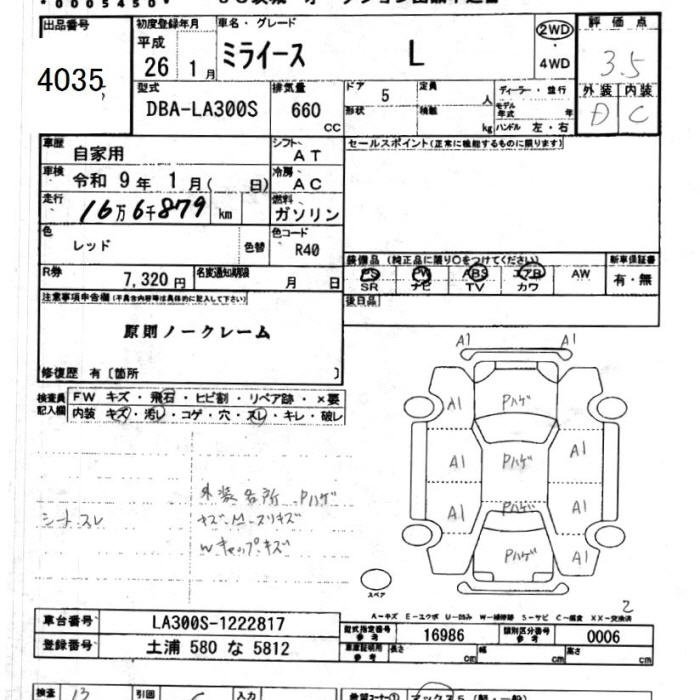 *0005450*
出品番号 初度登録年月 車名・グレード 評価点
平成 26 1月 ミライース L 2WD・4WD 3.5
4035
型式 排気量 ドア 定員 ディーラー・並行 外装 内装
DBA-LA300S 660 cc 5 人 モデル年式 年 D C
形状 積載 kg ハンドル 左・右
車歴 自家用 シフト AT セールスポイント(正常に機能するものに限ります)
車検 令和 9年 1月( 日) 冷房 AC
走行 16万6千879 km 燃料 ガソリン
色 レッド 色替 色コード R40
装備品 (純正品に限り○をつけてください) 新車保証書
PS PW ABS エアB AW 有・無
SR ナビ TV カワ
R券 7,320円 名変通知期限 月 日
後日品
注意事項申告欄(不具合内容等は具体的に記入して下さい)
原則ノークレーム
修復歴 有〔箇所 〕
検査員記入欄 FW キズ・飛石・ヒビ割・リペア跡・×要
内装 キズ・汚レ・コゲ・穴・スレ・キレ・破レ
A1 A1
A1 Pハゲ A1
A1 Pハゲ A1
A1 Pハゲ A1
Pハゲ A1
外装各所 Pハゲ
シートスレ キズ・M・スリキズ
Wキャップキズ
スペア
A-キズ E-エクボ U-凹み W-補修跡 S-サビ C-腐食 XX-交換済
2
車台番号 LA300S-1222817
登録番号 土浦 580 な 5812
型式指定番号 参考 16986 類別区分番号 参考 0006
車庫証明用 参考 長さ cm 幅 cm 高さ cm
検査 13 引回 入力 希望コーナー①